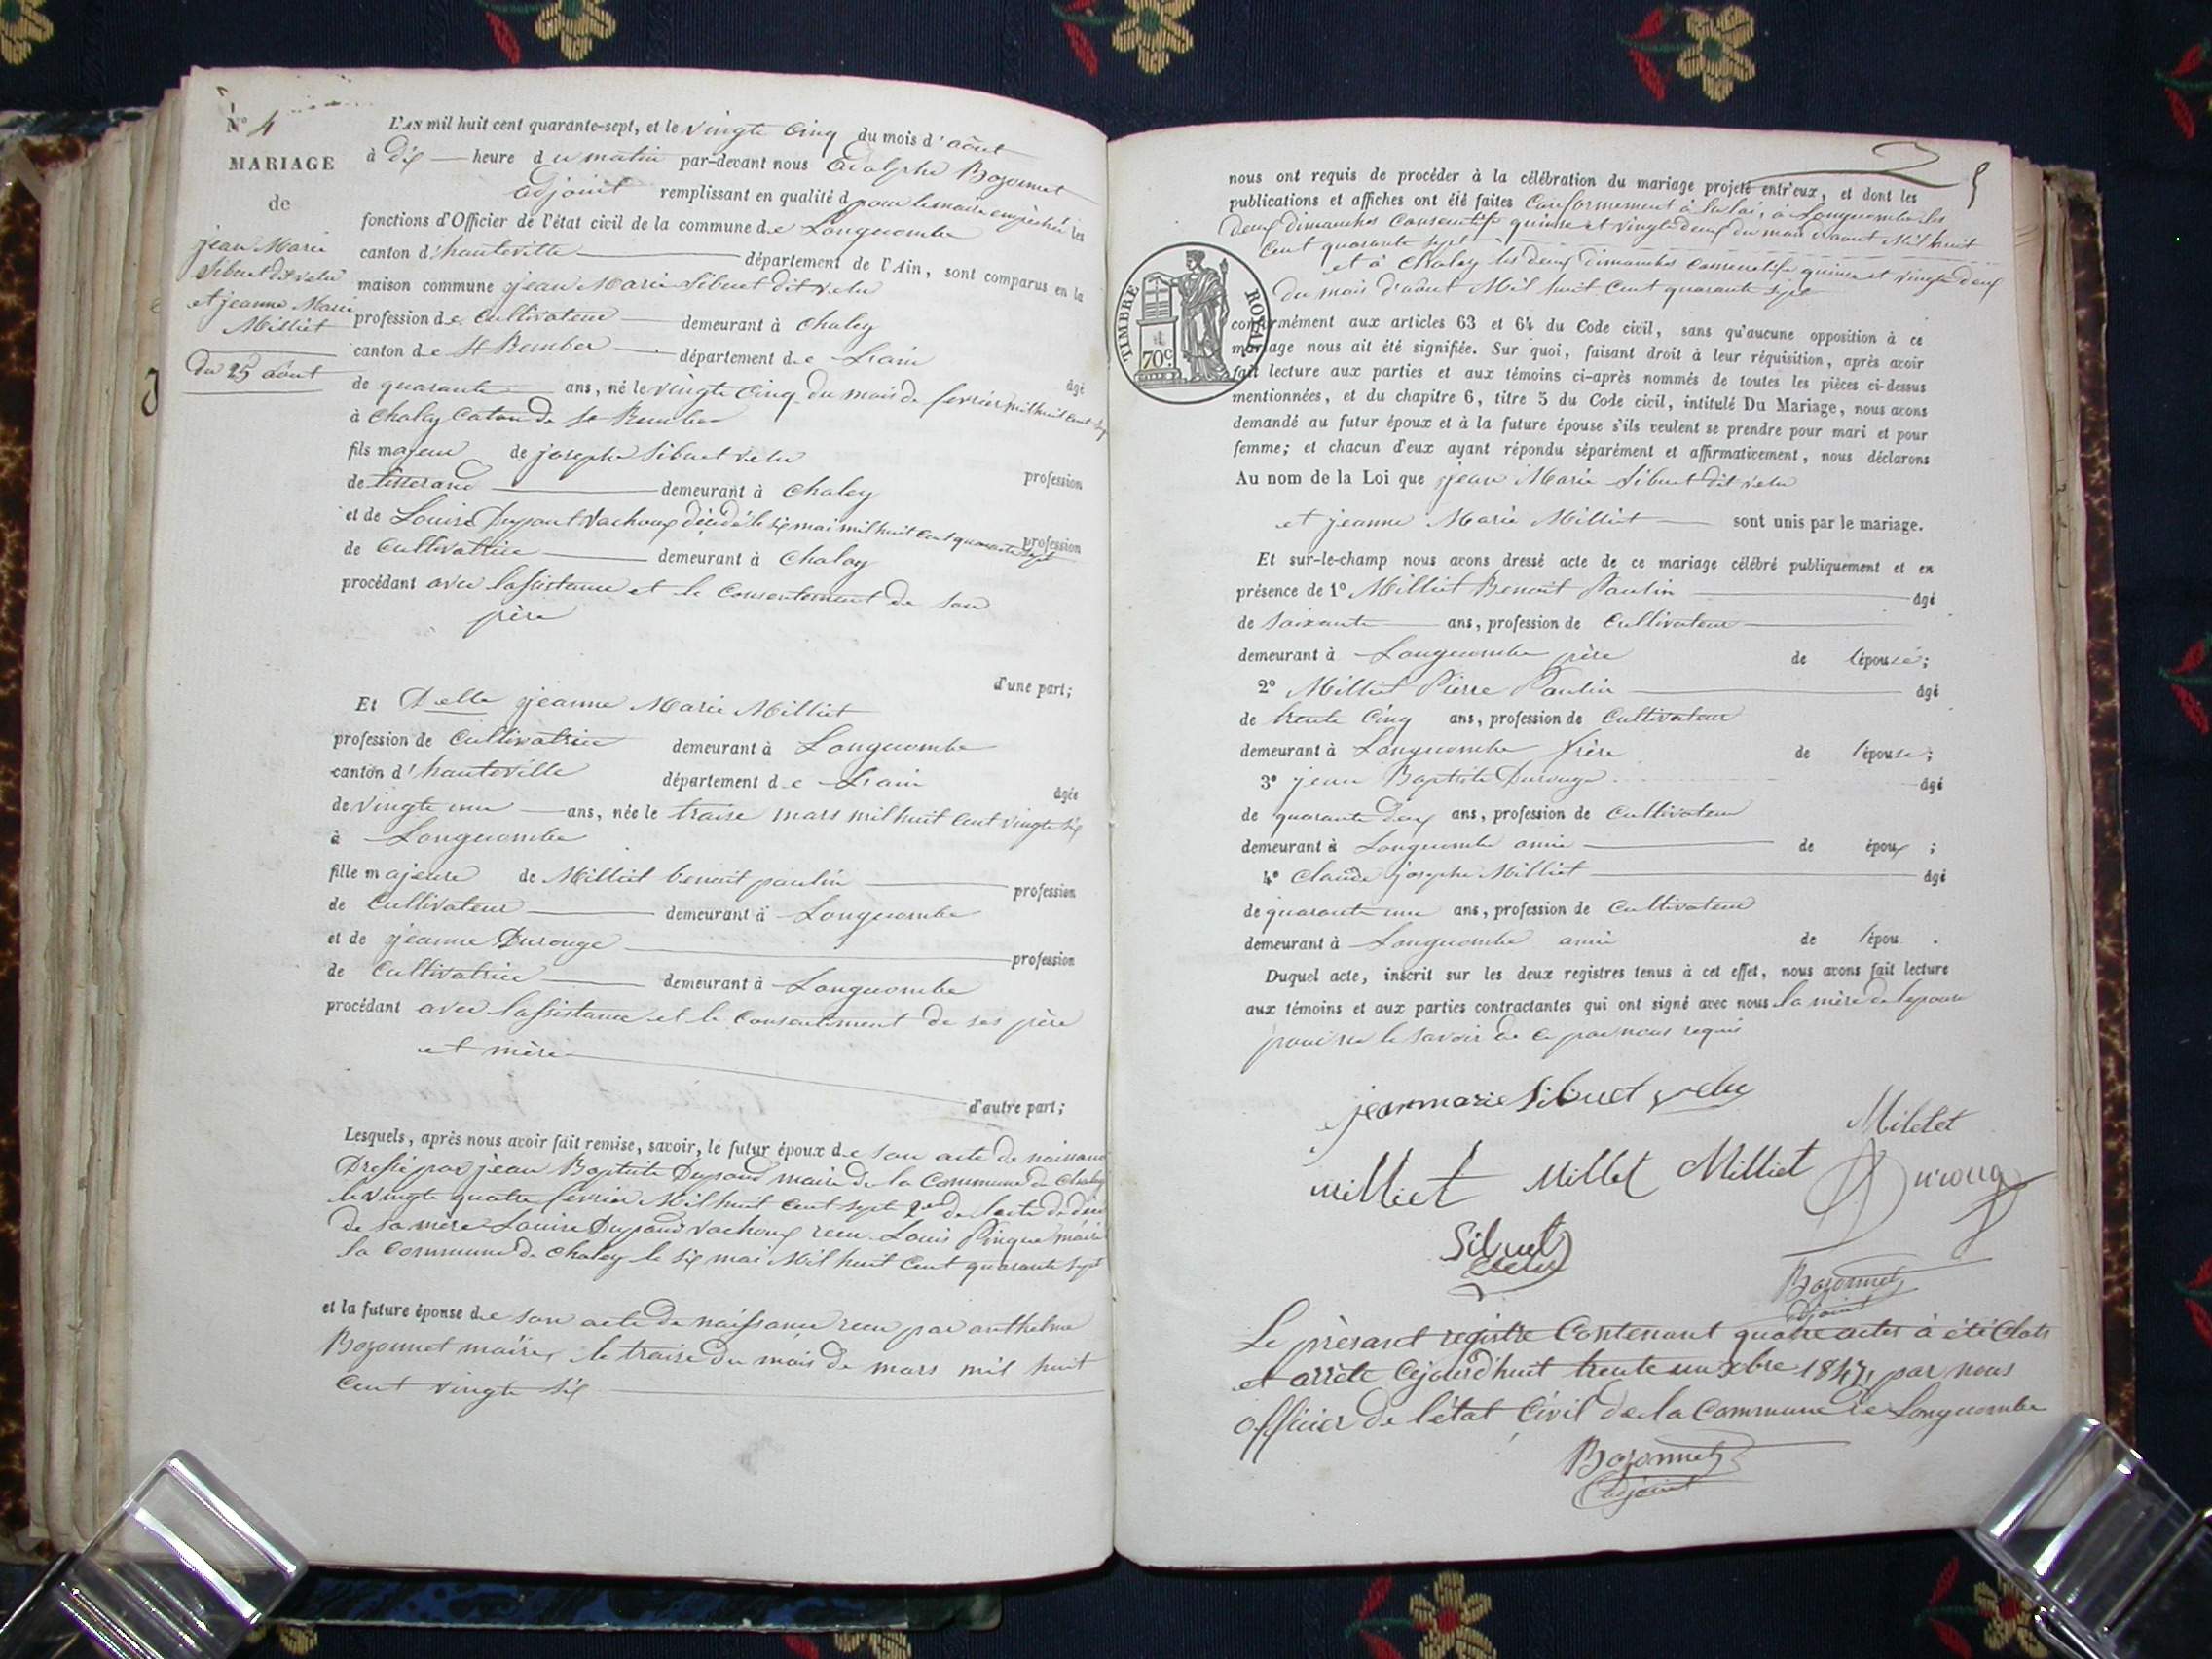 N° 4
MARIAGE
de
jean Marie
Sibuet dit velu
et jeanne Marie
Milliet
du 25 août
L'AN mil huit cent quarante-sept, et le vingte cinq du mois d'août
à dix heure du matin par-devant nous adolphe Bozonnet
adjoint remplissant en qualité d pour le maire empêché les
fonctions d'Officier de l'état civil de la commune de Longecombe
canton d'hauteville département de l'Ain, sont comparus en la
maison commune jean Marie Sibuet dit velu
profession de Cultivateur demeurant à Chaley
canton de St Rember département de Lain
âgé
de quarante ans, né le vingte cinq du mois de fevrier mil huit cent sept
à Chaley Caton de St Rember
fils majeur de joseph Sibuet velu
profession
de tisserand demeurant à Chaley
et de Louise Dupont Vachoux décédé le six mai mil huit cent quarante sept
profession
de Cultivatrice demeurant à Chaley
procédant avec lassistance et le Consentement de son
père
d'une part;
Et Delle jeanne Marie Milliet
profession de Cultivatrice demeurant à Longecombe
canton d'hauteville département de Lain
âgée
de vingte une ans, née le traise mars mil huit cent vingte six
à Longecombe
fille majeure de Milliet benoit paulin profession
de Cultivateur demeurant à Longecombe
et de jeanne Durouge profession
de Cultivatrice demeurant à Longecombe
procédant avec lassistance et le Consentement de ses père
et mère
d'autre part;
Lesquels, après nous avoir fait remise, savoir, le futur époux de son acte de naissance
Dressé par jean Baptiste Dupond maire de la Commune de Chaley
le vingte quatre fevrier Mil huit cent sept 2nd de lacte de décè
de sa mère Louise Dupond Vachoux recu Louis Pingue maire
la Commune de Chaley le six mai Mil huit Cent quarante sept
et la future épouse de son acte de naissance recu par anthelme
Bozonnet maire, le traise du mois de mars mil huit
Cent vingte six
5
nous ont requis de procéder à la célébration du mariage projeté entr'eux, et dont les
publications et affiches ont été faites Conformement à la loi, à Longecombe les
deux dimanches Consecutifs quinse et vingte deux du mois daout Mil huit
Cent quarante sept
et à Chaley les deux dimanches Consecutifs quinse et vingte deux
du mois d'août Mil huit Cent quarante sept
TIMBRE ROYAL
70c
conformément aux articles 63 et 64 du Code civil, sans qu'aucune opposition à ce
mariage nous ait été signifiée. Sur quoi, faisant droit à leur réquisition, après avoir
fait lecture aux parties et aux témoins ci-après nommés de toutes les pièces ci-dessus
mentionnées, et du chapitre 6, titre 5 du Code civil, intitulé Du Mariage, nous avons
demandé au futur époux et à la future épouse s'ils veulent se prendre pour mari et pour
femme; et chacun d'eux ayant répondu séparément et affirmativement, nous déclarons
Au nom de la Loi que jean Marie Sibuet dit velu
et jeanne Marie Milliet sont unis par le mariage.
Et sur-le-champ nous avons dressé acte de ce mariage célébré publiquement et en
présence de 1° Milliet Benoit Paulin âgé
de Soixante ans, profession de Cultivateur
demeurant à Longecombe père de l'épouse;
2° Milliet Pierre Paulin âgé
de trente Cinq ans, profession de Cultivateur
demeurant à Longecombe frère de l'épouse;
3° jean Baptiste Durouge âgé
de quarante deux ans, profession de Cultivateur
demeurant à Longecombe amie de époux ;
4° Claude joseph Milliet âgé
de quarante une ans, profession de Cultivateur
demeurant à Longecombe amie de l'épou .
Duquel acte, inscrit sur les deux registres tenus à cet effet, nous avons fait lecture
aux témoins et aux parties contractantes qui ont signé avec nous la mère de lepouse
pour ne le savoir de ce par nous requis
jean marie Sibuet velu
Milliet Millet Milliet Miletet
Durouge
Sibuet
velu
Bozonnet
adjoint
Le présant registre Contenant quatre actes à été Clots
et arrête Cejourd'huit trente un xbre 1847, par nous
officier de l'état Civil de la Commune de Longecombe
Bozonnet
adjoint